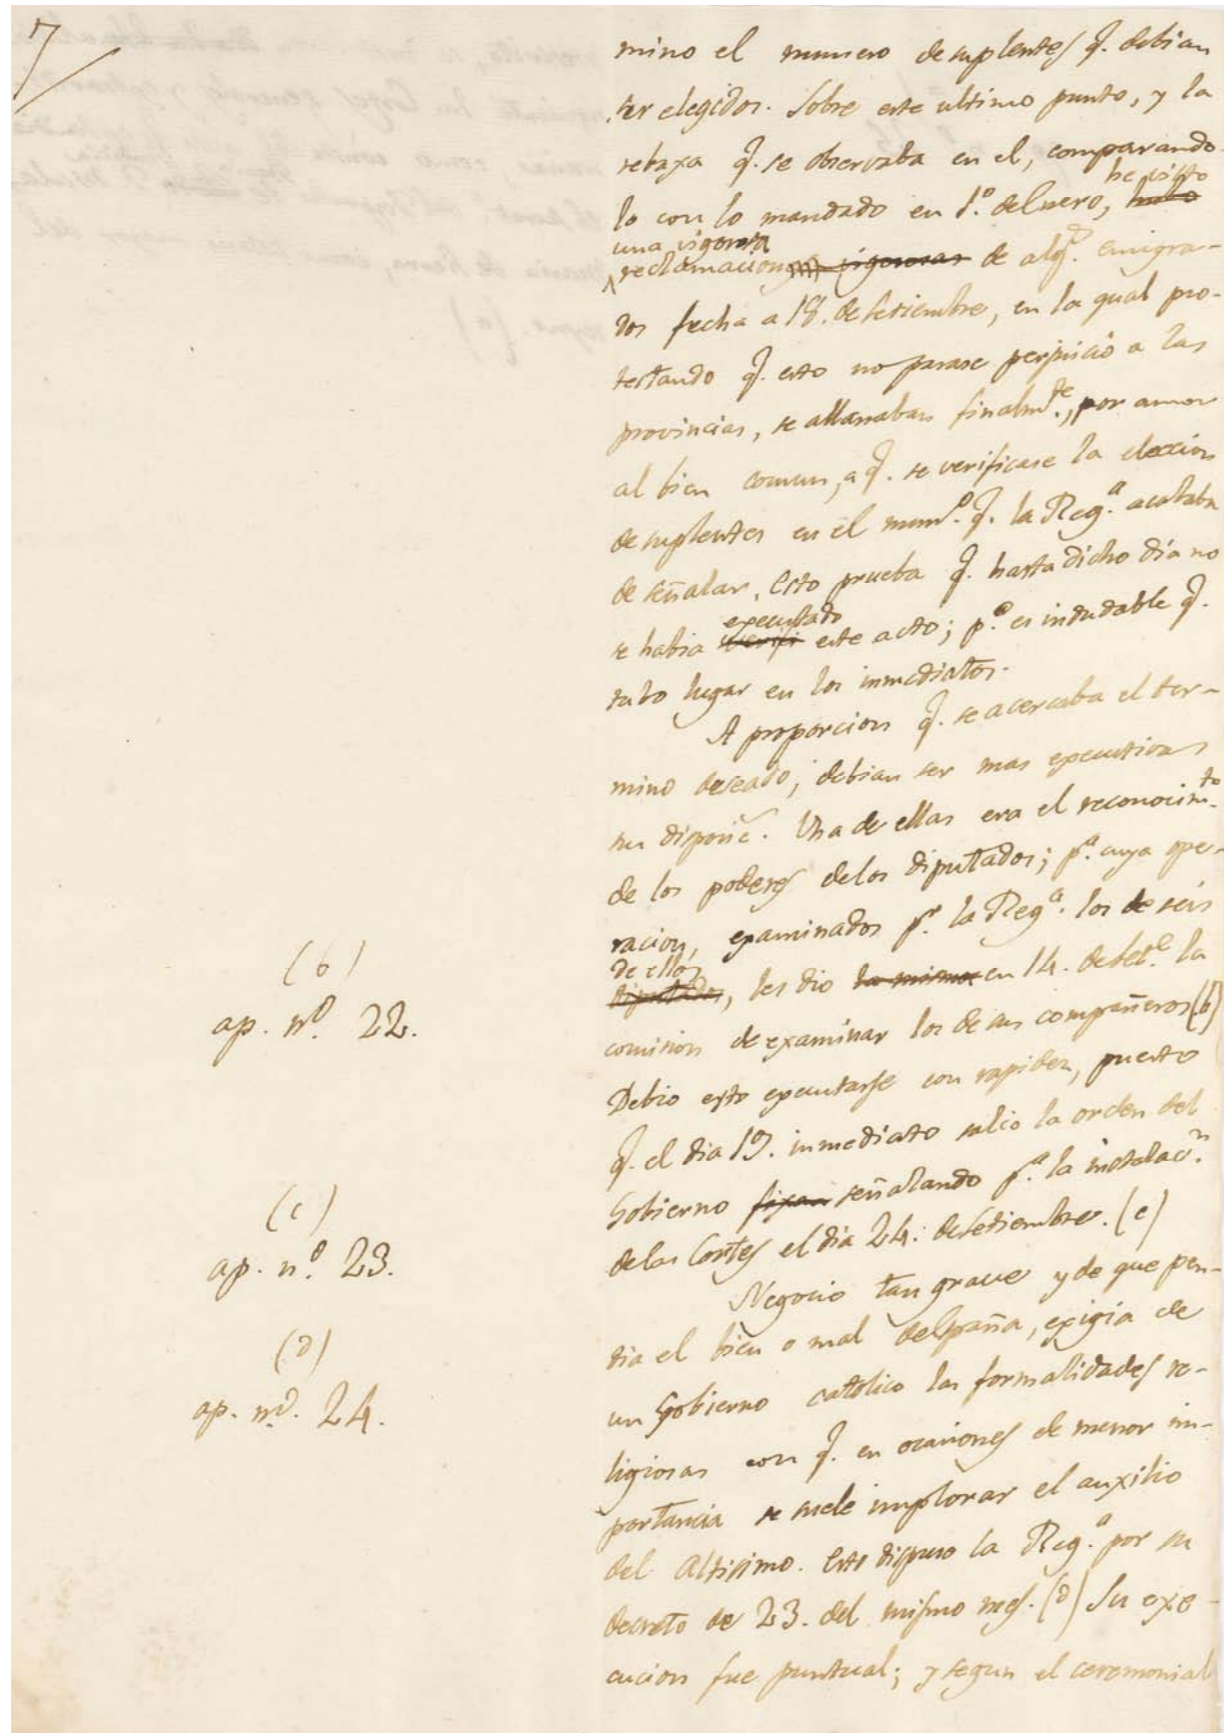 7
mino el numero de suplentes q. debian
ser elegidos. Sobre este ultimo punto, y la
rebaxa q. se observaba en el, comparando-
he visto
lo con lo mandado en 1.º de Enero, hubo
una vigorosa
reclamaciones vigorosas de alg.s emigra-
dos fecha a 18. de Setiembre, en la qual pro-
testando q. esto no parase perjuicio a las
provincias, se allanaban finalm.te, por amor
al bien comun, a q. se verificase la eleccion
de suplentes en el num.º q. la Reg.a acababa
de señalar. Esto prueba q. hasta dicho dia no
executado
se habia verifi este acto; p.º es indudable q.
tubo lugar en los inmediatos.
A proporcion q. se acercaba el ter-
mino deseado, debian ser mas executivas
sus disposic. Una de ellas era el reconocim.to
de los poderes de los diputados; p.a cuya ope-
racion, examinados p.r la Reg.a los de seis
de ellos
diputados, les dio la misma en 14. de Set.e la
comision de examinar los de sus compañeros (b)
Debio esto executarse con rapidez, puesto
q. el dia 19. inmediato salio la orden del
Gobierno fixan señalando p.a la instalac.n
de las Cortes el dia 24. de Setiembre. (c)
Negocio tan grave y de que pen-
dia el bien o mal de España, exigia de
un Gobierno catolico las formalidades re-
ligiosas con q. en ocasiones de menor im-
portancia se suele implorar el auxilio
del Altisimo. Esto dispuso la Reg.a por su
decreto de 23. del mismo mes. (d) Su exe-
cucion fue puntual; y segun el ceremonial
(b)
ap. nº. 22.
(c)
ap. nº. 23.
(d)
ap. nº. 24.